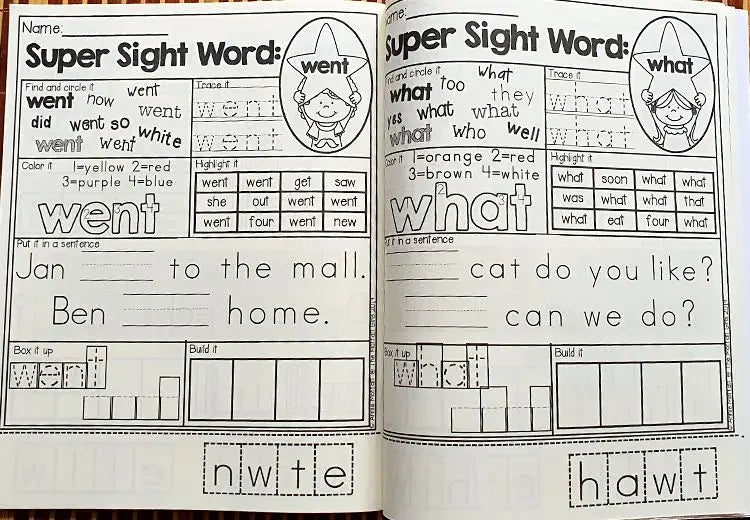 Name:
Super Sight Word:
went
Find and circle it
went how went
went
did went so
went went white
Trace it
went
went
Color it 1=yellow 2=red
3=purple 4=blue
went
Highlight it
went went get saw
she out went went
went four went new
Put it in a sentence
Jan to the mall.
Ben home.
Box it up
went
Build it
n w t e
Name:
Super Sight Word:
what
Find and circle it
what
what too they
yes what what
what who well
Trace it
what
what
Color it 1=orange 2=red
3=brown 4=white
what
Highlight it
what soon what what
was what what that
what eat four what
Put it in a sentence
cat do you like?
can we do?
Box it up
what
Build it
h a w t